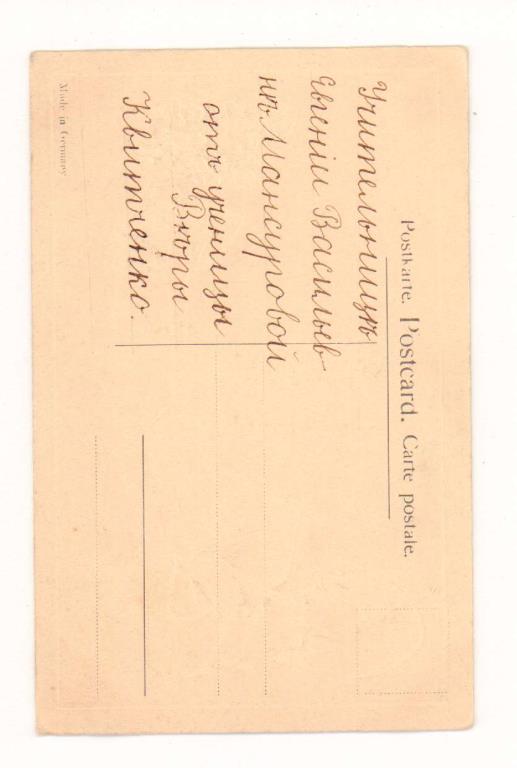 Postkarte. Postcard. Carte postale.
Учительницѣ
Евгеніи Васильев
нѣ Мансуровой
отъ ученицы
Вѣры
Квитченко.
Made in Germany